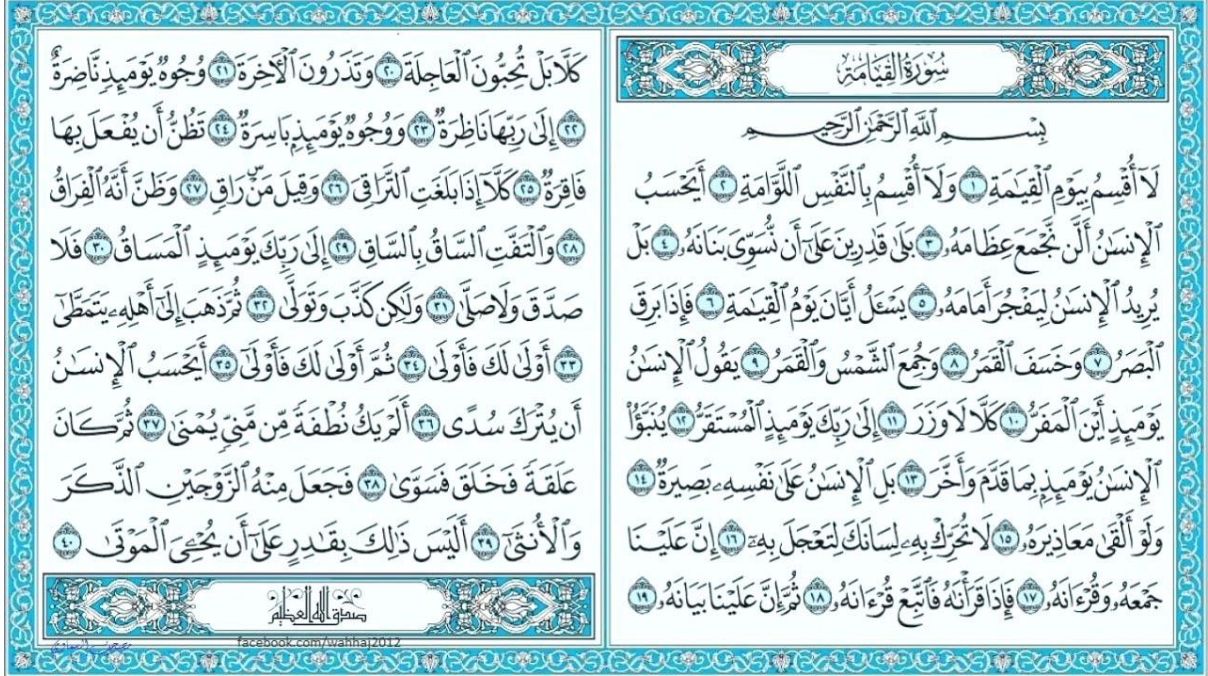 سُورَةُ الْقِيَامَةِ
بِسْمِ ٱللَّهِ ٱلرَّحْمَٰنِ ٱلرَّحِيمِ
لَآ أُقْسِمُ بِيَوْمِ ٱلْقِيَٰمَةِ ١ وَلَآ أُقْسِمُ بِٱلنَّفْسِ ٱللَّوَّامَةِ ٢ أَيَحْسَبُ
ٱلْإِنسَٰنُ أَلَّن نَّجْمَعَ عِظَامَهُۥ ٣ بَلَىٰ قَٰدِرِينَ عَلَىٰٓ أَن نُّسَوِّىَ بَنَانَهُۥ ٤ بَلْ
يُرِيدُ ٱلْإِنسَٰنُ لِيَفْجُرَ أَمَامَهُۥ ٥ يَسْـَٔلُ أَيَّانَ يَوْمُ ٱلْقِيَٰمَةِ ٦ فَإِذَا بَرِقَ
ٱلْبَصَرُ ٧ وَخَسَفَ ٱلْقَمَرُ ٨ وَجُمِعَ ٱلشَّمْسُ وَٱلْقَمَرُ ٩ يَقُولُ ٱلْإِنسَٰنُ
يَوْمَئِذٍ أَيْنَ ٱلْمَفَرُّ ١٠ كَلَّا لَا وَزَرَ ١١ إِلَىٰ رَبِّكَ يَوْمَئِذٍ ٱلْمُسْتَقَرُّ ١٢ يُنَبَّؤُا۟
ٱلْإِنسَٰنُ يَوْمَئِذٍۭ بِمَا قَدَّمَ وَأَخَّرَ ١٣ بَلِ ٱلْإِنسَٰنُ عَلَىٰ نَفْسِهِۦ بَصِيرَةٌ ١٤
وَلَوْ أَلْقَىٰ مَعَاذِيرَهُۥ ١٥ لَا تُحَرِّكْ بِهِۦ لِسَانَكَ لِتَعْجَلَ بِهِۦٓ ١٦ إِنَّ عَلَيْنَا
جَمْعَهُۥ وَقُرْءَانَهُۥ ١٧ فَإِذَا قَرَأْنَٰهُ فَٱتَّبِعْ قُرْءَانَهُۥ ١٨ ثُمَّ إِنَّ عَلَيْنَا بَيَانَهُۥ ١٩
كَلَّا بَلْ تُحِبُّونَ ٱلْعَاجِلَةَ ٢٠ وَتَذَرُونَ ٱلْءَاخِرَةَ ٢١ وُجُوهٌ يَوْمَئِذٍ نَّاضِرَةٌ
٢٢ إِلَىٰ رَبِّهَا نَاظِرَةٌ ٢٣ وَوُجُوهٌ يَوْمَئِذٍۭ بَاسِرَةٌ ٢٤ تَظُنُّ أَن يُفْعَلَ بِهَا
فَاقِرَةٌ ٢٥ كَلَّآ إِذَا بَلَغَتِ ٱلتَّرَاقِىَ ٢٦ وَقِيلَ مَنْ رَاقٍ ٢٧ وَظَنَّ أَنَّهُ ٱلْفِرَاقُ
٢٨ وَٱلْتَفَّتِ ٱلسَّاقُ بِٱلسَّاقِ ٢٩ إِلَىٰ رَبِّكَ يَوْمَئِذٍ ٱلْمَسَاقُ ٣٠ فَلَا
صَدَّقَ وَلَا صَلَّىٰ ٣١ وَلَٰكِن كَذَّبَ وَتَوَلَّىٰ ٣٢ ثُمَّ ذَهَبَ إِلَىٰٓ أَهْلِهِۦ يَتَمَطَّىٰٓ
٣٣ أَوْلَىٰ لَكَ فَأَوْلَىٰ ٣٤ ثُمَّ أَوْلَىٰ لَكَ فَأَوْلَىٰٓ ٣٥ أَيَحْسَبُ ٱلْإِنسَٰنُ
أَن يُتْرَكَ سُدًى ٣٦ أَلَمْ يَكُ نُطْفَةً مِّن مَّنِىٍّ يُمْنَىٰ ٣٧ ثُمَّ كَانَ
عَلَقَةً فَخَلَقَ فَسَوَّىٰ ٣٨ فَجَعَلَ مِنْهُ ٱلزَّوْجَيْنِ ٱلذَّكَرَ
وَٱلْأُنثَىٰٓ ٣٩ أَلَيْسَ ذَٰلِكَ بِقَٰدِرٍ عَلَىٰٓ أَن يُحْـِۧىَ ٱلْمَوْتَىٰ ٤٠
صدق الله العظيم
facebook.com/wahhaj2012